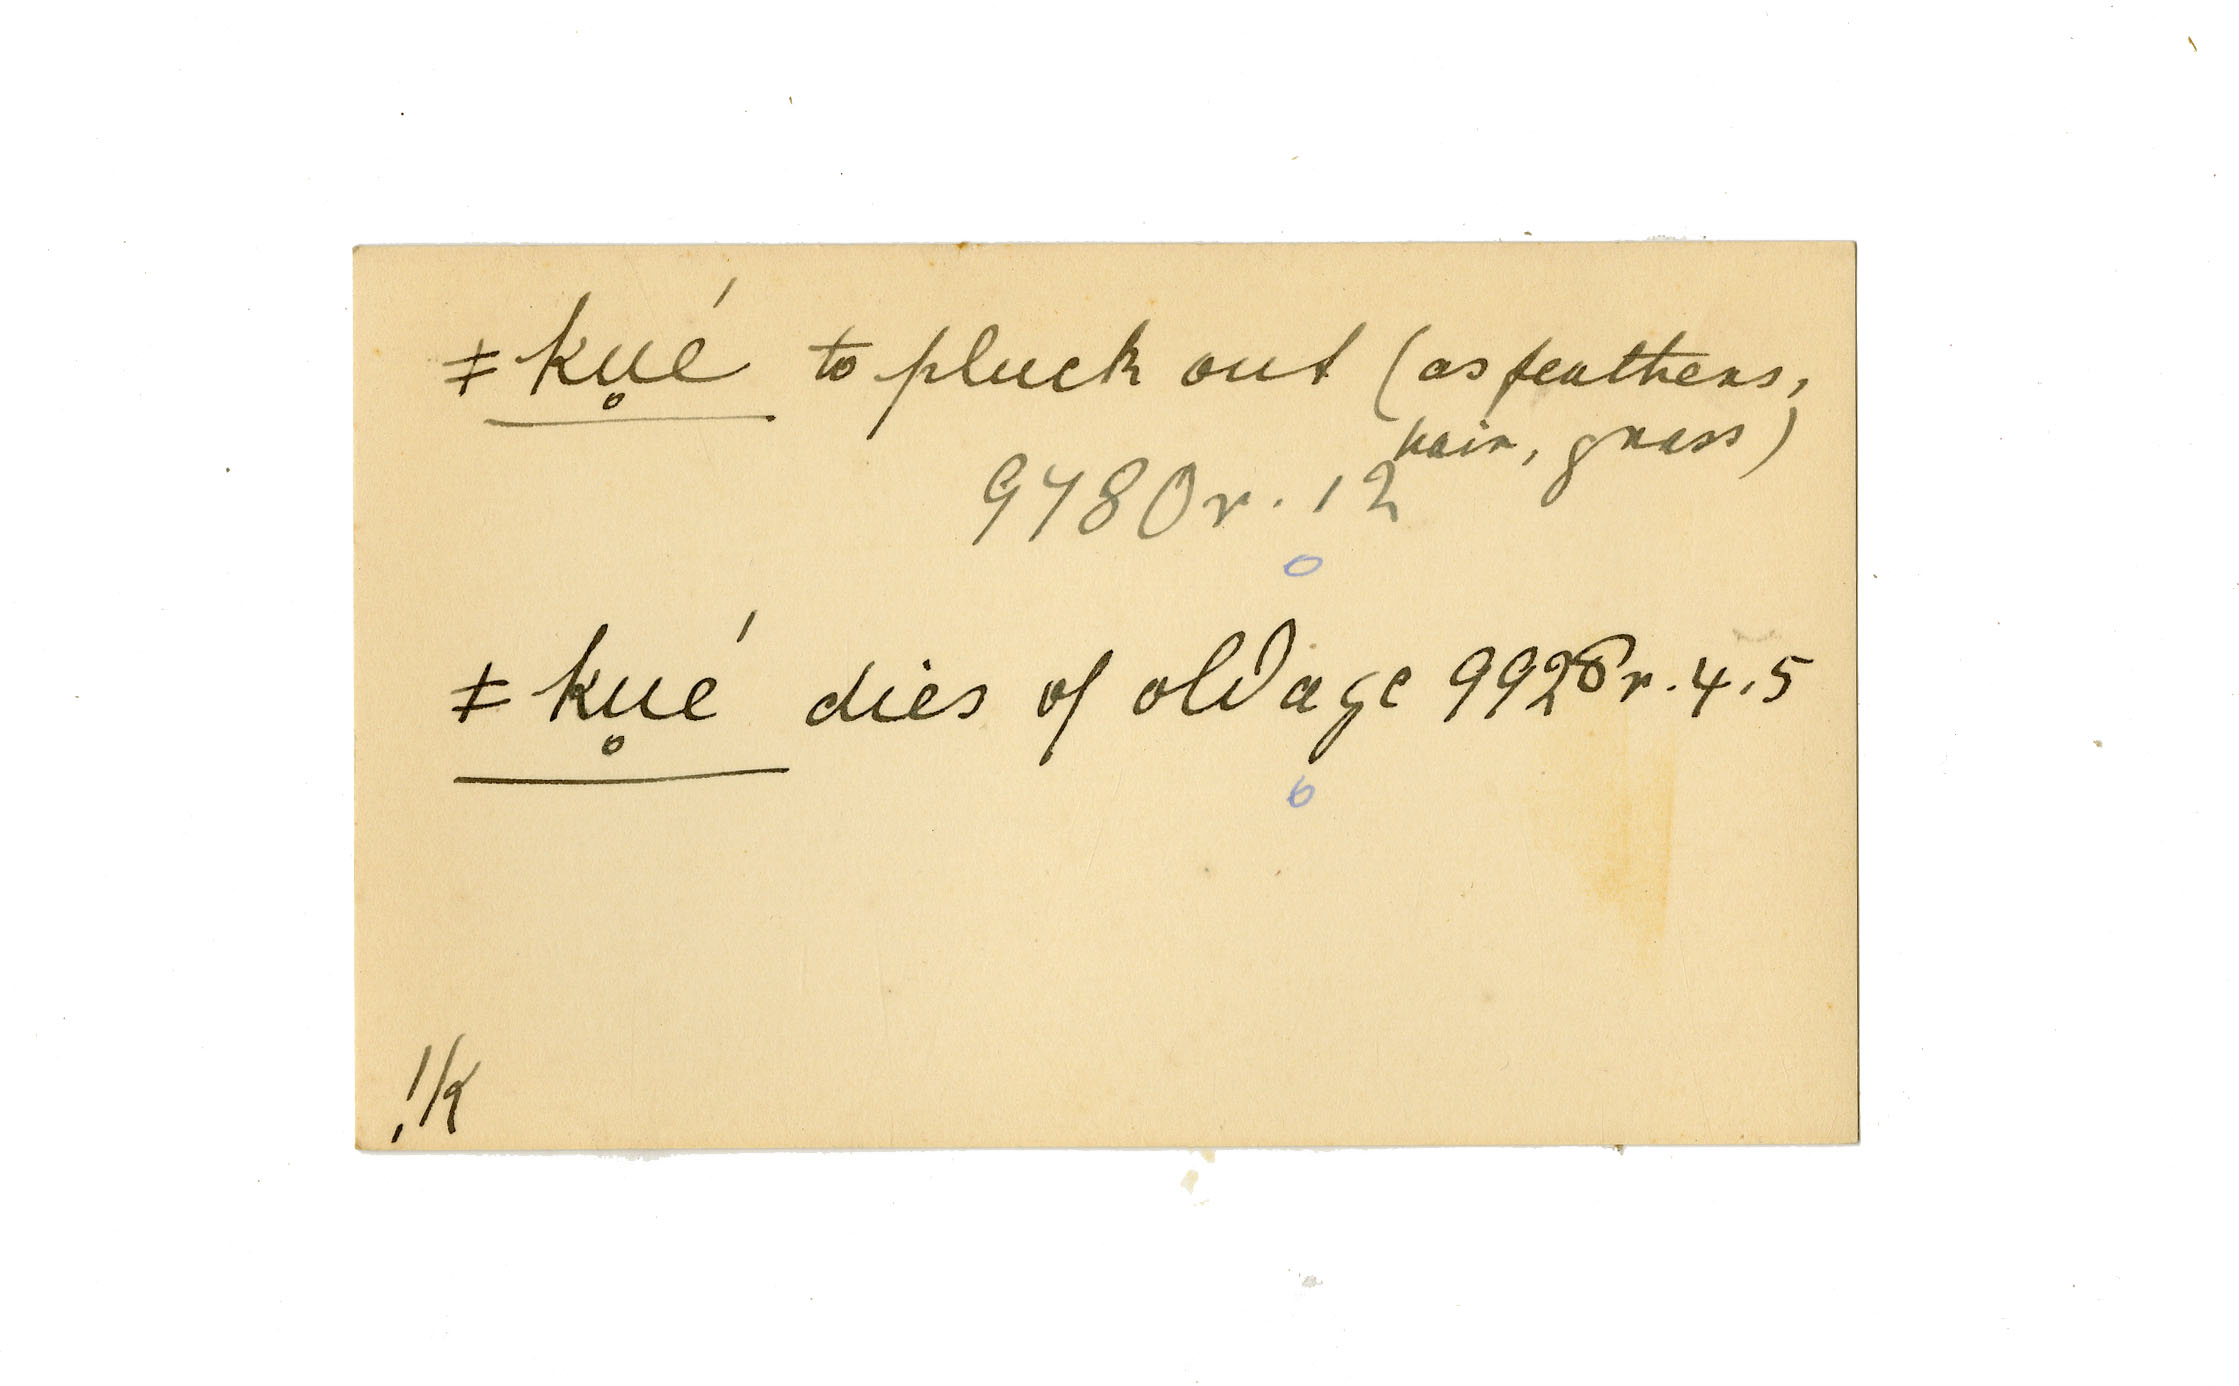 ǂku̥é to pluck out (as feathers,
hair, grass)
9780r. 12
o
ǂku̥é dies of old age 9928r. 4.5
6
!k